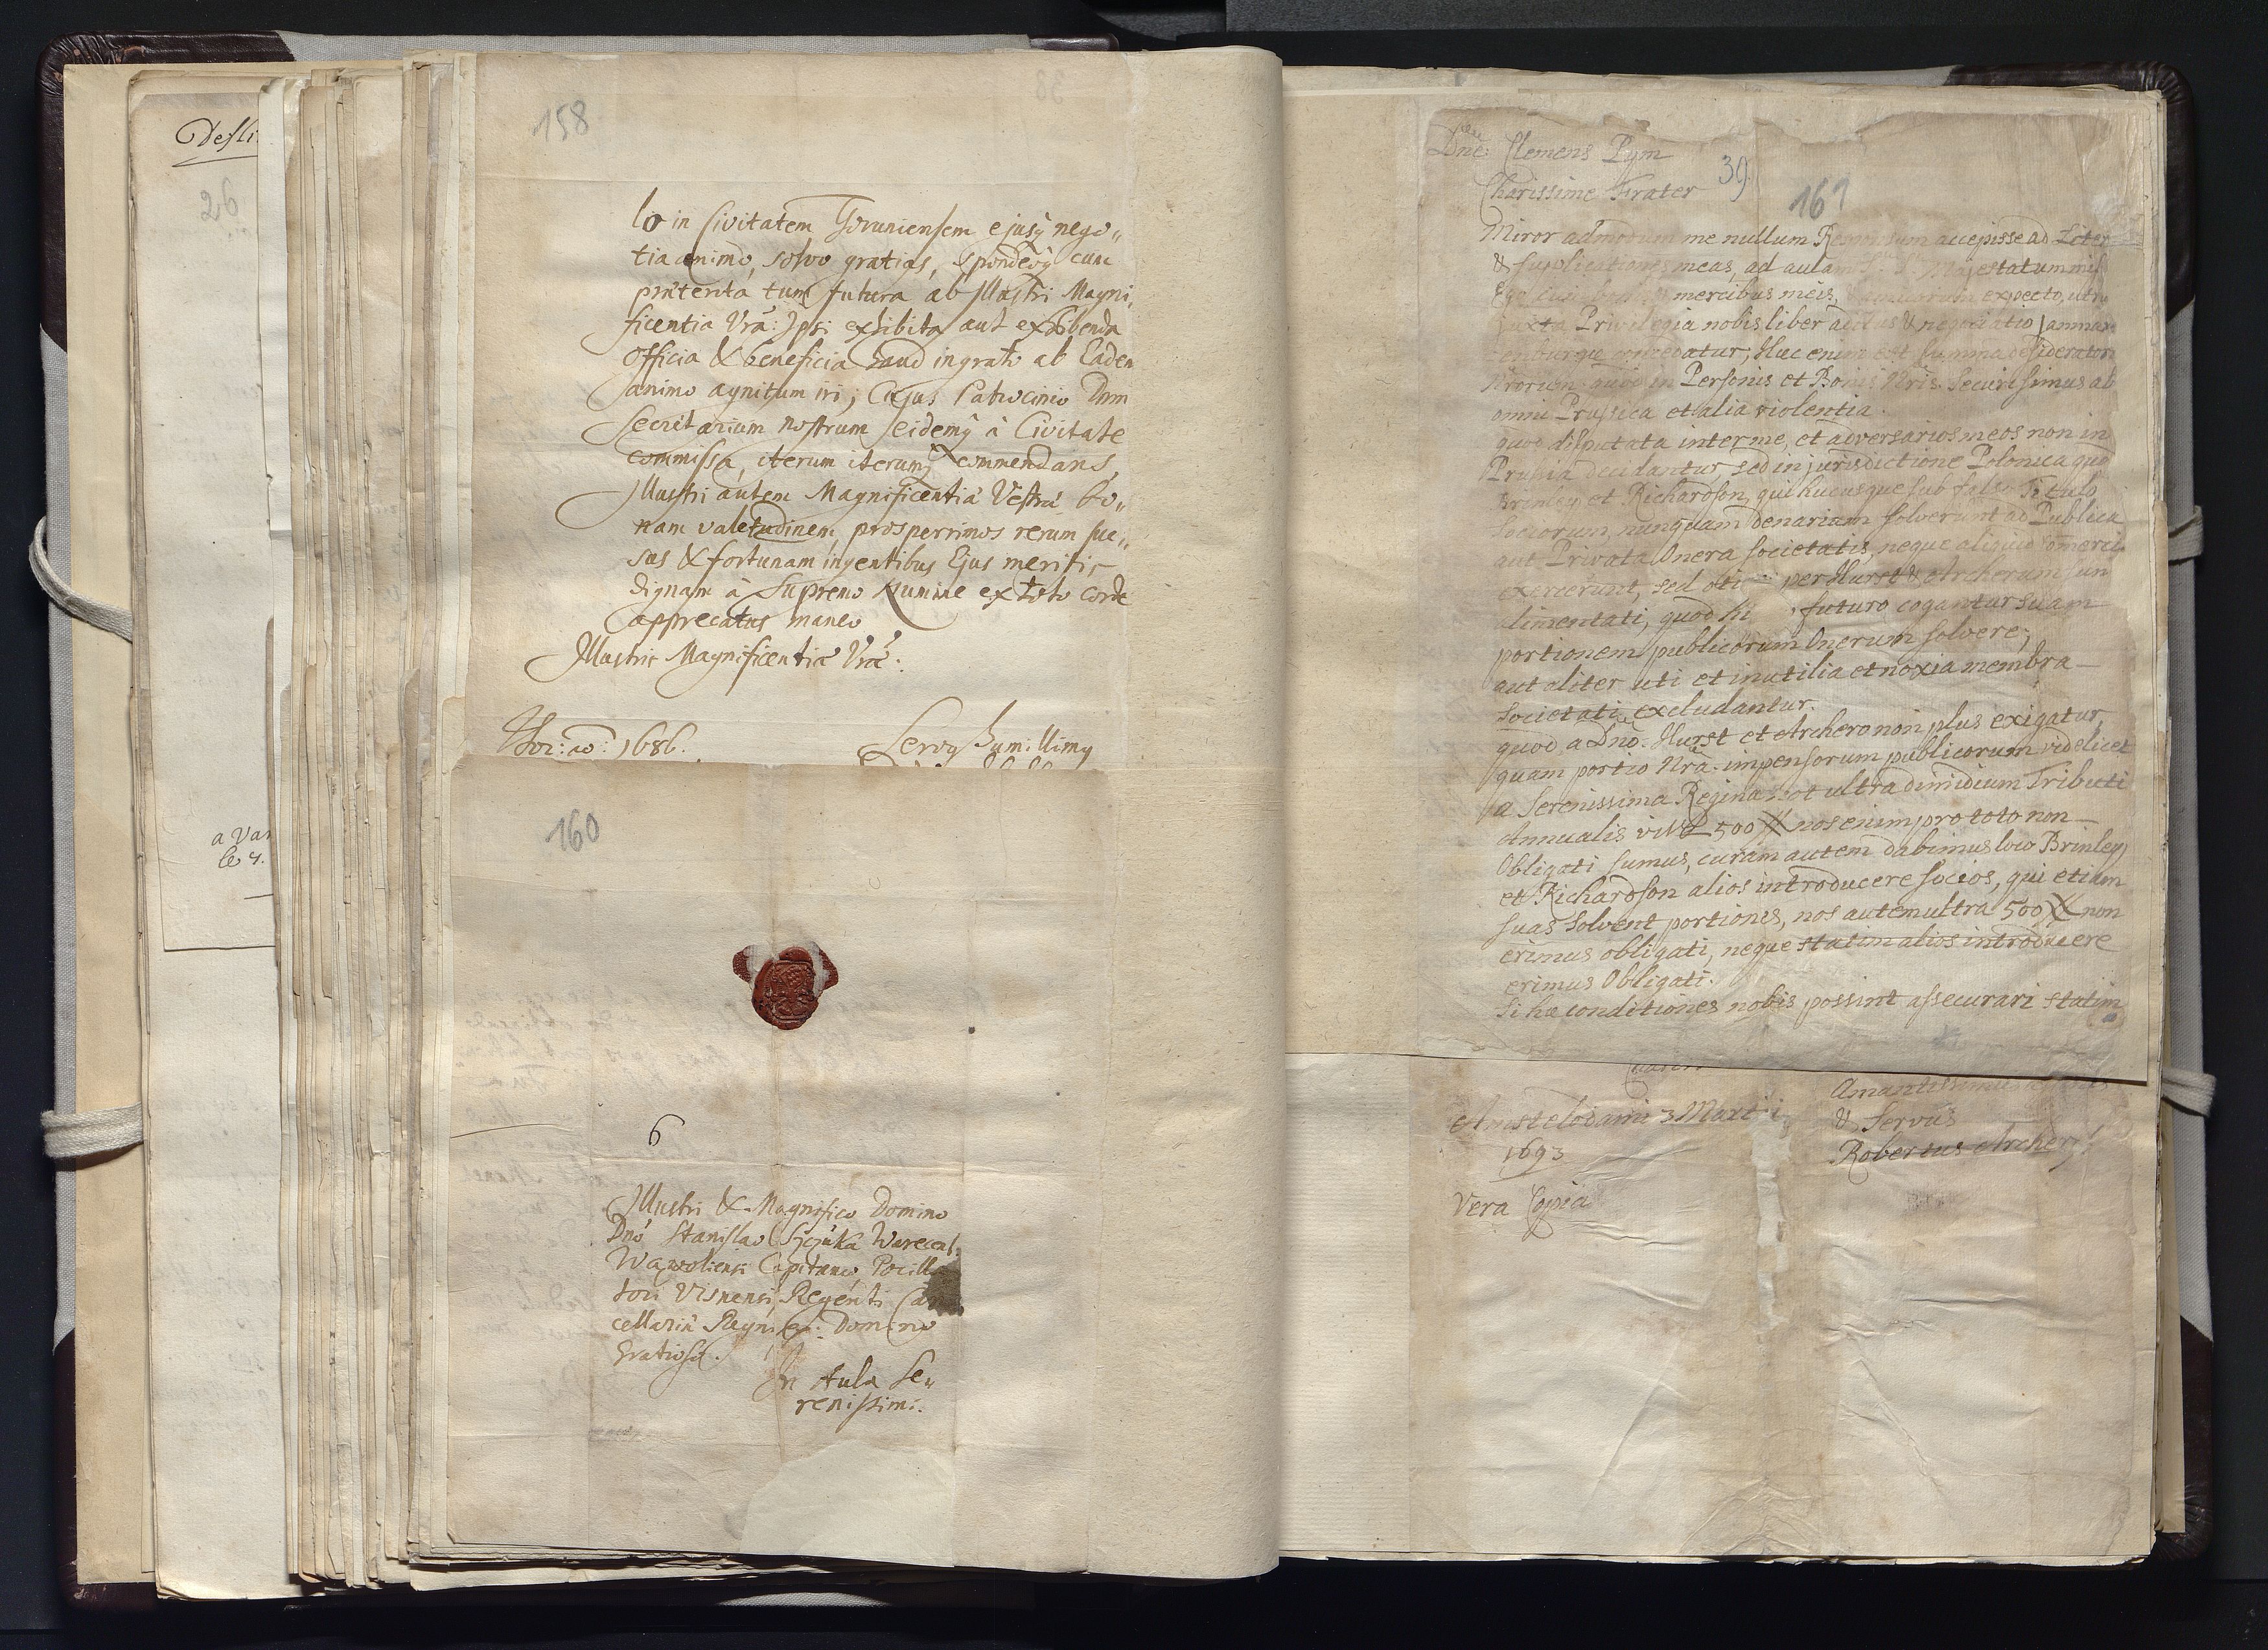 Desli
26
a Var
le 4.
38
158
lo in Civitatem Thoruniensem ejusq nego„
tia animo, solvo gratias, spondeoq cum
præterita tum futura ab Illustri Magni„
ficentia Vrâ: Ipsi exhibita aut exhibenda
officia & beneficia haud ingrato ab Eadem
animo agnitum iri; Cujus Patrocinio Dnm
Secretarium nostrum eidemq à Civitate
commissa, iterum iterumq commendans,
Illustri autem Magnificentiæ Vestræ bo„
nam valetudinem, prosperrimos rerum suc„
sus & fortunam ingentibus Ejus meritis
dignam à Supremo Numine ex toto corde
apprecatus maneo
Illustris Magnificentiæ Vræ:
Thor: ao: 1686.
Servq humillimq
160
6
Illustri & Magnifico Domino
Dnô Stanislao Szczuka Warecensi
Wąwoliensi Capitaneo, Pocilla
tori Visnensi, Regenti Can
cellariæ Regni, &: Domino
Gratiosô.
In Aula Se„
renissimi.
Dne: Clemens Pym
39.
Charissime Frater
161
Miror admodum me nullum Responsum accepisse ad Liter
& supplicationes meas, ad aulam S. S. Majestatum mis
mercibus meis, expecto, ut
juxta Privilegia nobis liber aditus & negociatio Janmar
enburgæ concedatur, Hæc enim est summa desideratorum
Nrorum quod in Personis et Bonis Nris Securissimus ab
omni Prussica et alia violentia.
quod disputata inter me, et adversarios meos non in
Prussia decidantur, sed in jurisdictione Polonica quod
Brinley et Richardson, qui hucusque sub falso Titulo
Sociorum, nunquam denarium solverunt ad Publica
aut Privata Onera Societatis, neque aliquid Comercii
exercerunt, sed oti per Hurst & Archerum sun
alimentati, quod hi futuro cogantur suam
portionem publicorum Onerum solvere;
aut aliter uti et inutilia et noxia membra
Societati excludantur.
quod a Dno. Hurst et Archero non plus exigatur,
quam portio Nra. impensorum publicorum videlicet
a Serenissima Regina: ut ultra dimidium Tributi
Annualis vid. 500 # nos enim pro toto non
Obligati sumus, curam autem dabimus loco Brinley
et Richardson alios introducere socios, qui etiam
suas solvent portiones, nos autem ultra 500 # non
erimus obligati, neque statim alios introducere
erimus Obligati.
Si hæ conditiones nobis possint assecurari statim
Amantissimus
Amstelodami 3 Martii
& Servus
1693
Robertus Archer
Vera Copia